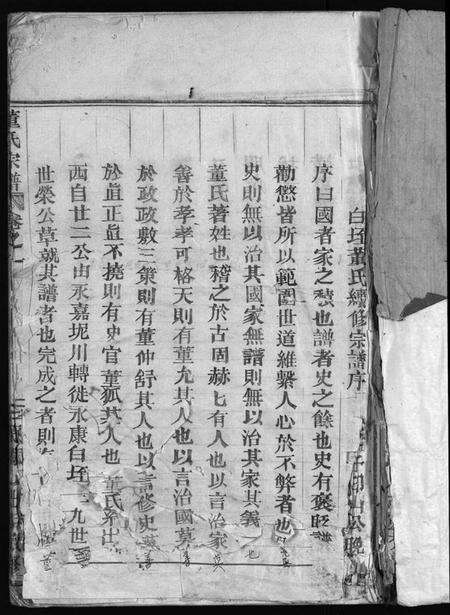 白垤董氏續修宗譜序
序曰國者家之積也譜者史之餘也史有褒貶譜
勸懲皆所以範圍世道維繫人心於不弊者也
史則無以治其國家無譜則無以治其家其義一也
董氏著姓也稽之於古固赫七有人也以言治家莫
善於孝孝可格天則有董允其人也以言治國莫善
於政政敷三策則有董仲舒其人也以言修史莫善
於直正直不撓則有史官董狐其人也董氏系出
西自廿二公由永嘉坭川轉徙永康白垤
九世
世榮公草就其譜者也完成之者則
董氏宗譜
卷之一